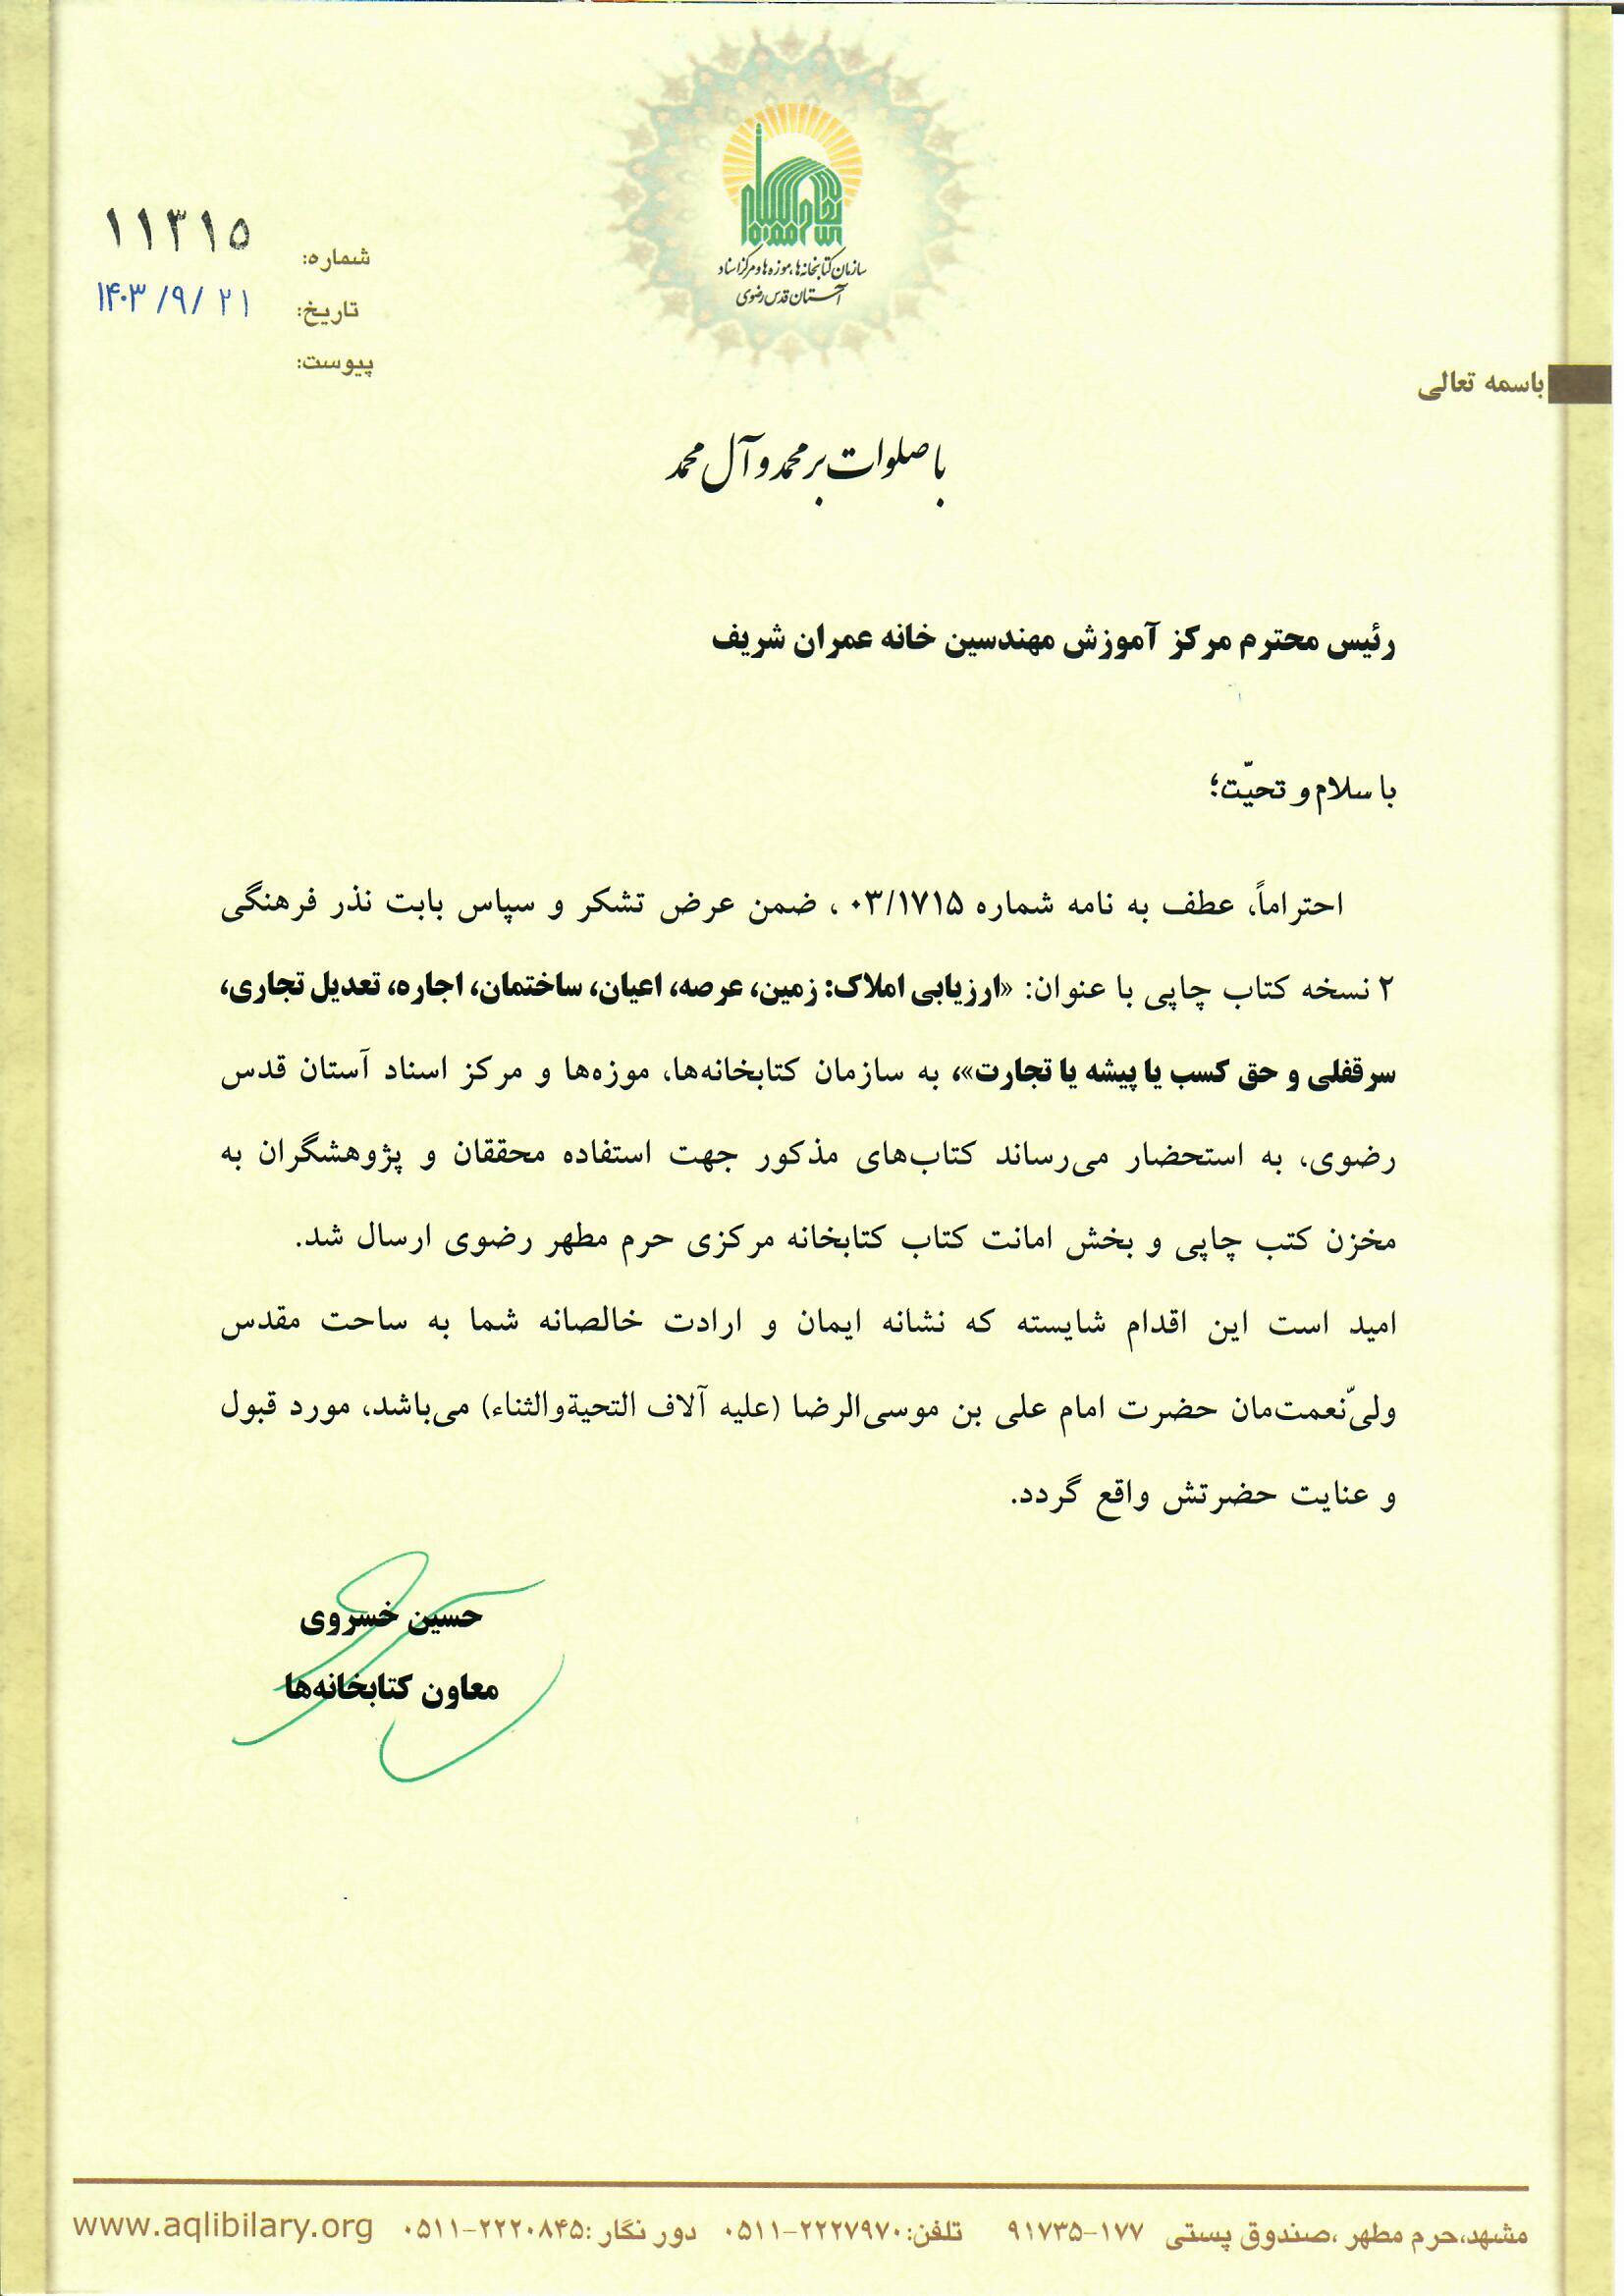 سازمان کتابخانه‌ها، موزه‌ها و مرکز اسناد
آستان قدس رضوی
شماره: ۱۱۳۱۵
تاریخ: ۱۴۰۳/۹/۲۱
پیوست:
باسمه تعالی
با صلوات بر محمد و آل محمد
رئیس محترم مرکز آموزش مهندسین خانه عمران شریف
با سلام و تحیّت؛
احتراماً، عطف به نامه شماره ۰۳/۱۷۱۵ ، ضمن عرض تشکر و سپاس بابت نذر فرهنگی
۲ نسخه کتاب چاپی با عنوان: «ارزیابی املاک: زمین، عرصه، اعیان، ساختمان، اجاره، تعدیل تجاری،
سرقفلی و حق کسب یا پیشه یا تجارت»، به سازمان کتابخانه‌ها، موزه‌ها و مرکز اسناد آستان قدس
رضوی، به استحضار می‌رساند کتاب‌های مذکور جهت استفاده محققان و پژوهشگران به
مخزن کتب چاپی و بخش امانت کتاب کتابخانه مرکزی حرم مطهر رضوی ارسال شد.
امید است این اقدام شایسته که نشانه ایمان و ارادت خالصانه شما به ساحت مقدس
ولیّ‌نعمت‌مان حضرت امام علی بن موسی‌الرضا (علیه آلاف التحیةوالثناء) می‌باشد، مورد قبول
و عنایت حضرتش واقع گردد.
حسین خسروی
معاون کتابخانه‌ها
مشهد،حرم مطهر ،صندوق پستی ۱۷۷-۹۱۷۳۵ تلفن: ۲۲۲۷۹۷۰-۰۵۱۱ دور نگار :۲۲۲۰۸۴۵-۰۵۱۱ www.aqlibilary.org